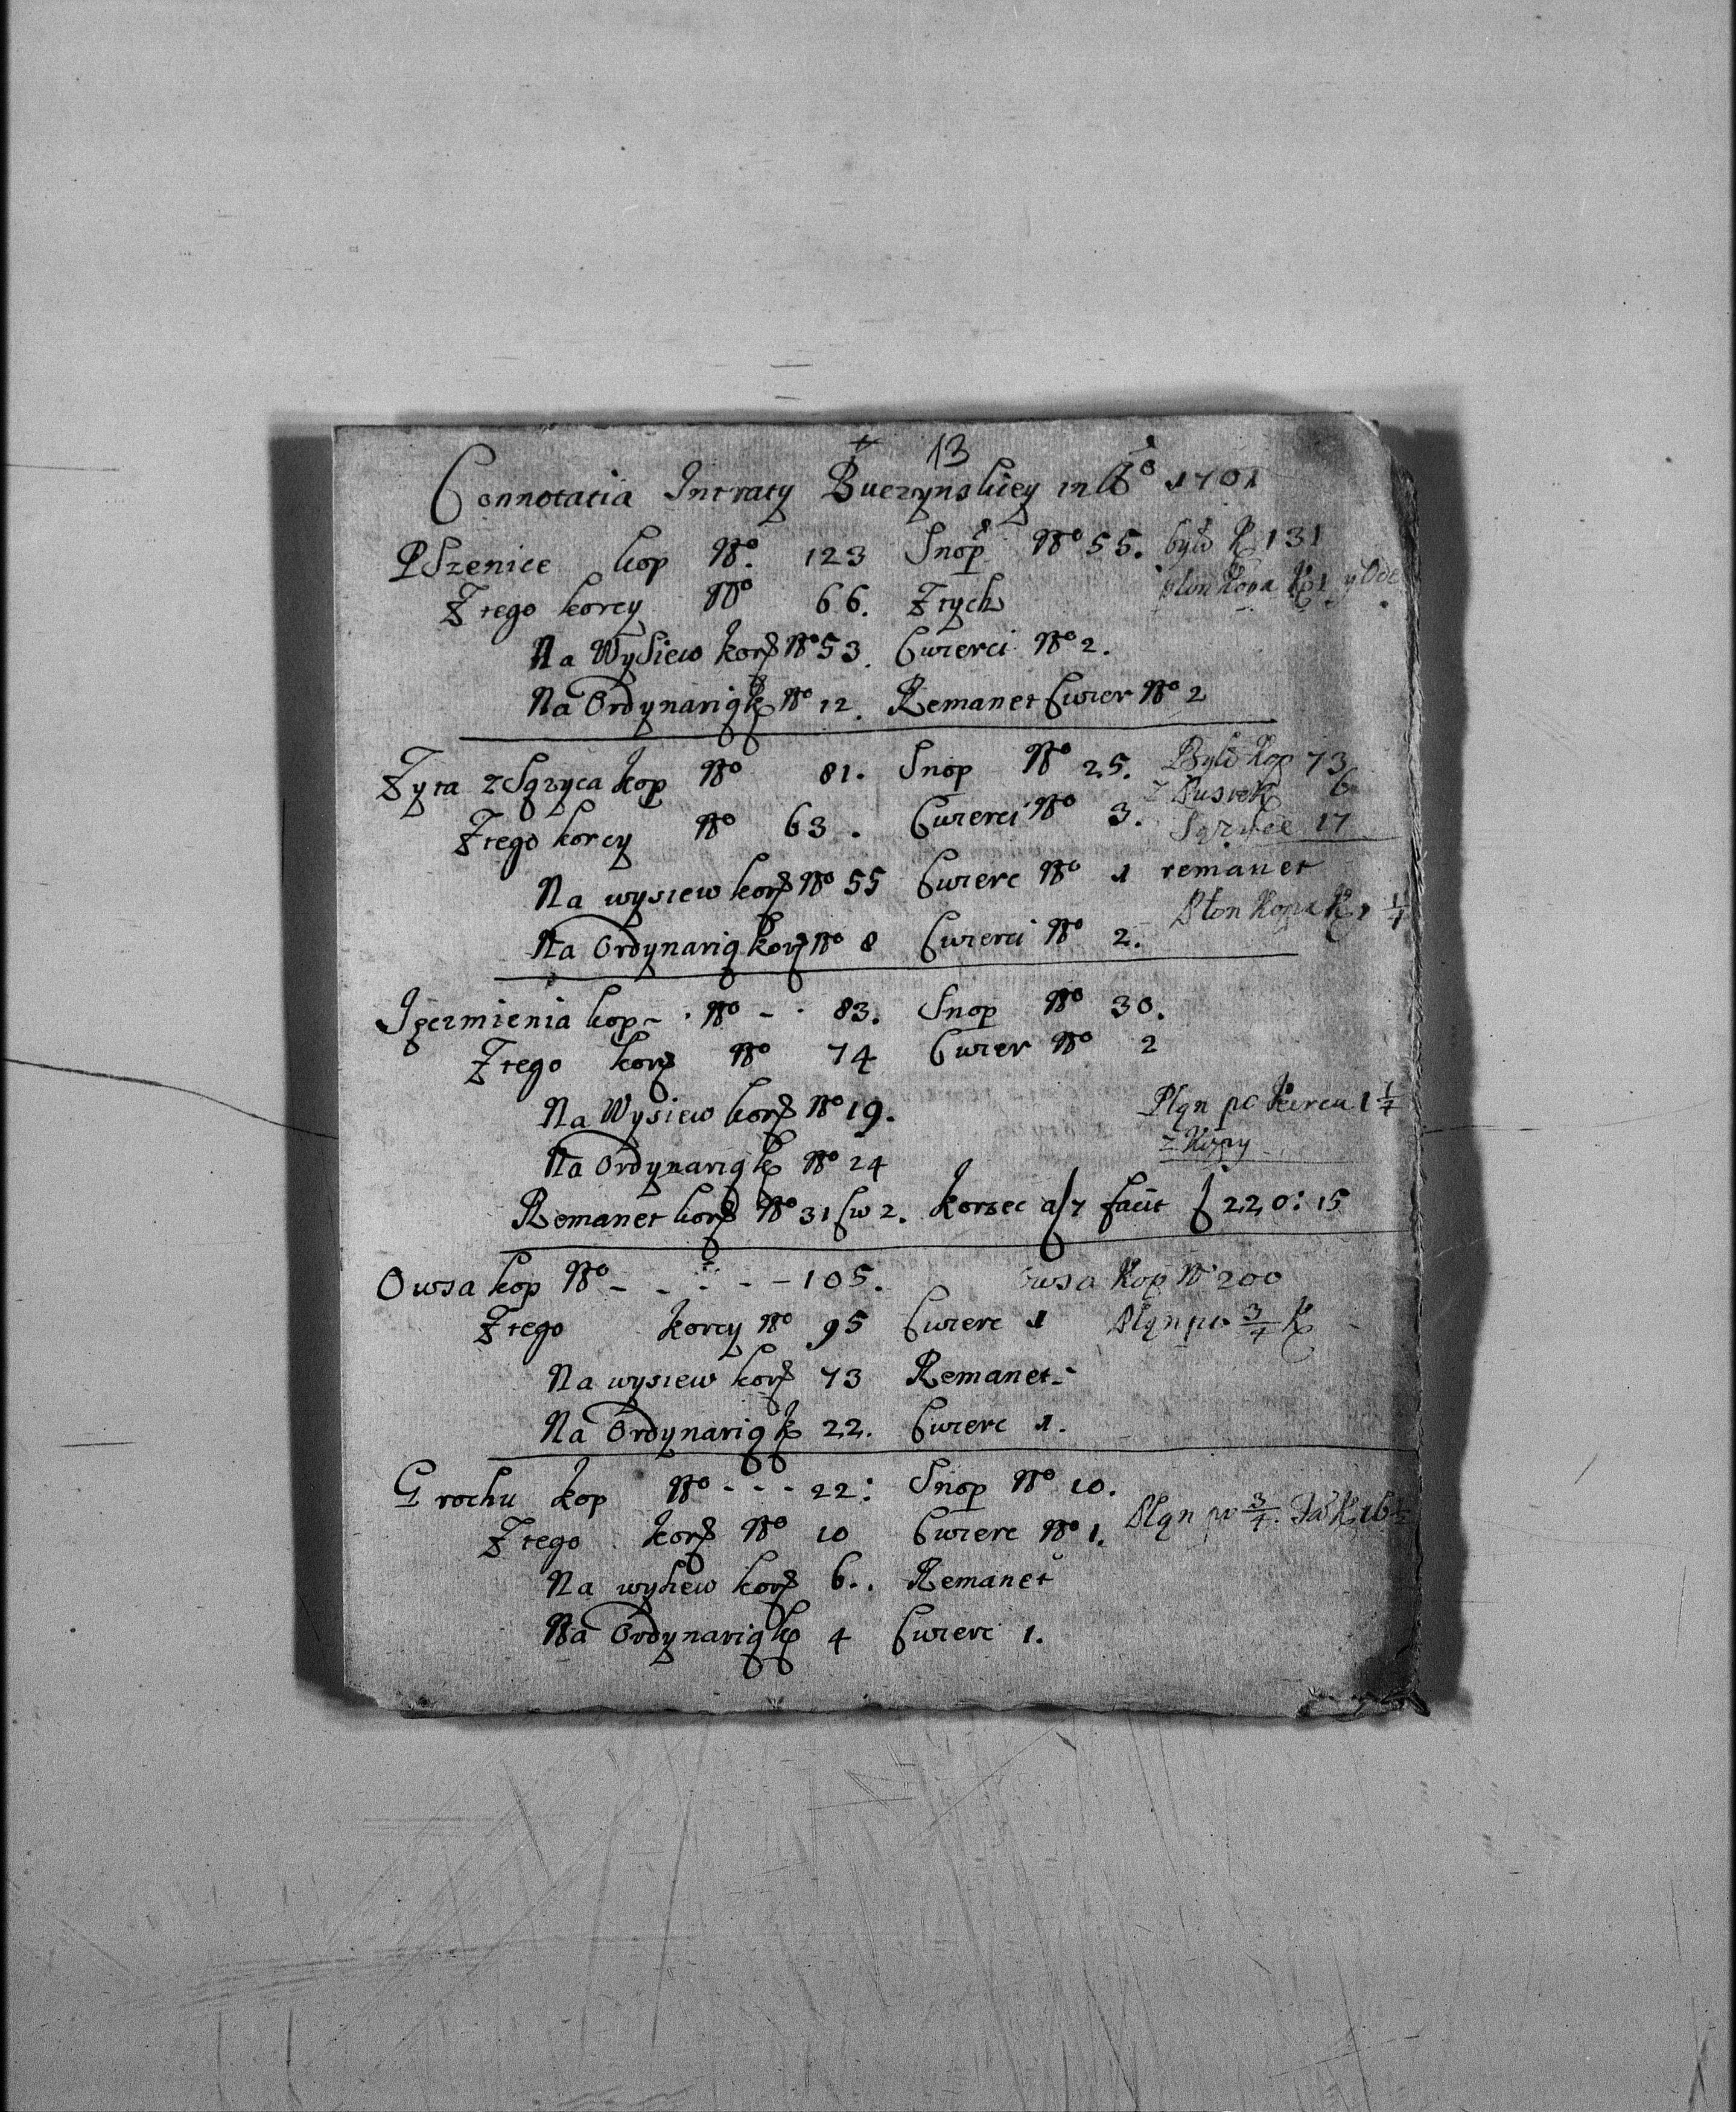 13
Connotatia Intraty Buczynskiey in Ao 1701
PSzenice kop No. 123 Snop No 55. było K 131
Ztego korcy No 66. Ztych plon Kopa K 1 y
Na WySiew korz No 53. Cwierci No 2.
Na Ordynarią k No 12. Remanet Cwier No 2
Zyta zSązyca kop No 81. Snop No 25. Było Kop 73
6
Ztego korcy No 63. Cwierci No 3. 17
Na wysiew korz No 55 Cwierc No 1 remanet
Na Ordynarią korz No 8 Cwierci No 2. Plon Kopa K 1 1/4
Jęczmienia kop - . No - . 83. Snop No 30.
Ztego korz No 74 Cwier No 2
Na Wysiew korz No 19. Pląn po korcu 1 1/4
z Kopy
Na Ordynarią k No 24
Remanet korz No 31 Cw 2. Korzec a/7 facit f 220: 15
Owsa kop No - - - - - 105. Owsa Kop No 200
Ztego korcy No 95 Cwierc 1 Pląn po 3/4 K
Na wysiew korz 73 Remanet -
Na Ordynarią k 22. Cwierc 1.
Grochu kop No - - - 22: Snop No 10.
Ztego korz No 10 Cwierc No 1. Pląn po 3/4.
Na wysiew korz 6.. Remanet
Na Ordynarią k 4 Cwierc 1.